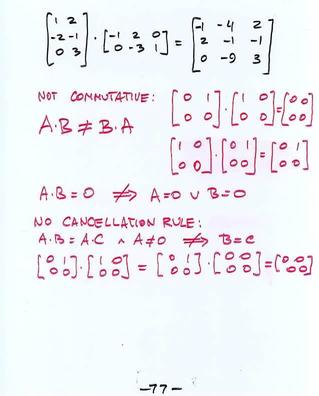 [1 2; -2 -1; 0 3] · [-1 2 0; 0 -3 1] = [-1 -4 2; 2 -1 -1; 0 -9 3]
NOT COMMUTATIVE: [0 1; 0 0] · [1 0; 0 0] = [0 0; 0 0]
A·B ≠ B·A
[1 0; 0 0] · [0 1; 0 0] = [0 1; 0 0]
A·B=0 ⇏ A=0 ∨ B=0
NO CANCELLATION RULE:
A·B = A·C ∧ A≠0 ⇏ B=C
[0 1; 0 0] · [1 0; 0 0] = [0 1; 0 0] · [0 0; 0 0] = [0 0; 0 0]
-77-